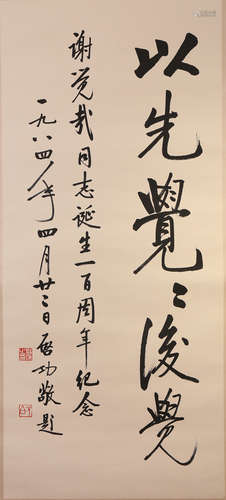 以先覺〻後覺
谢觉哉同志诞生一百周年纪念
一九八四年四月廿二日启功敬题